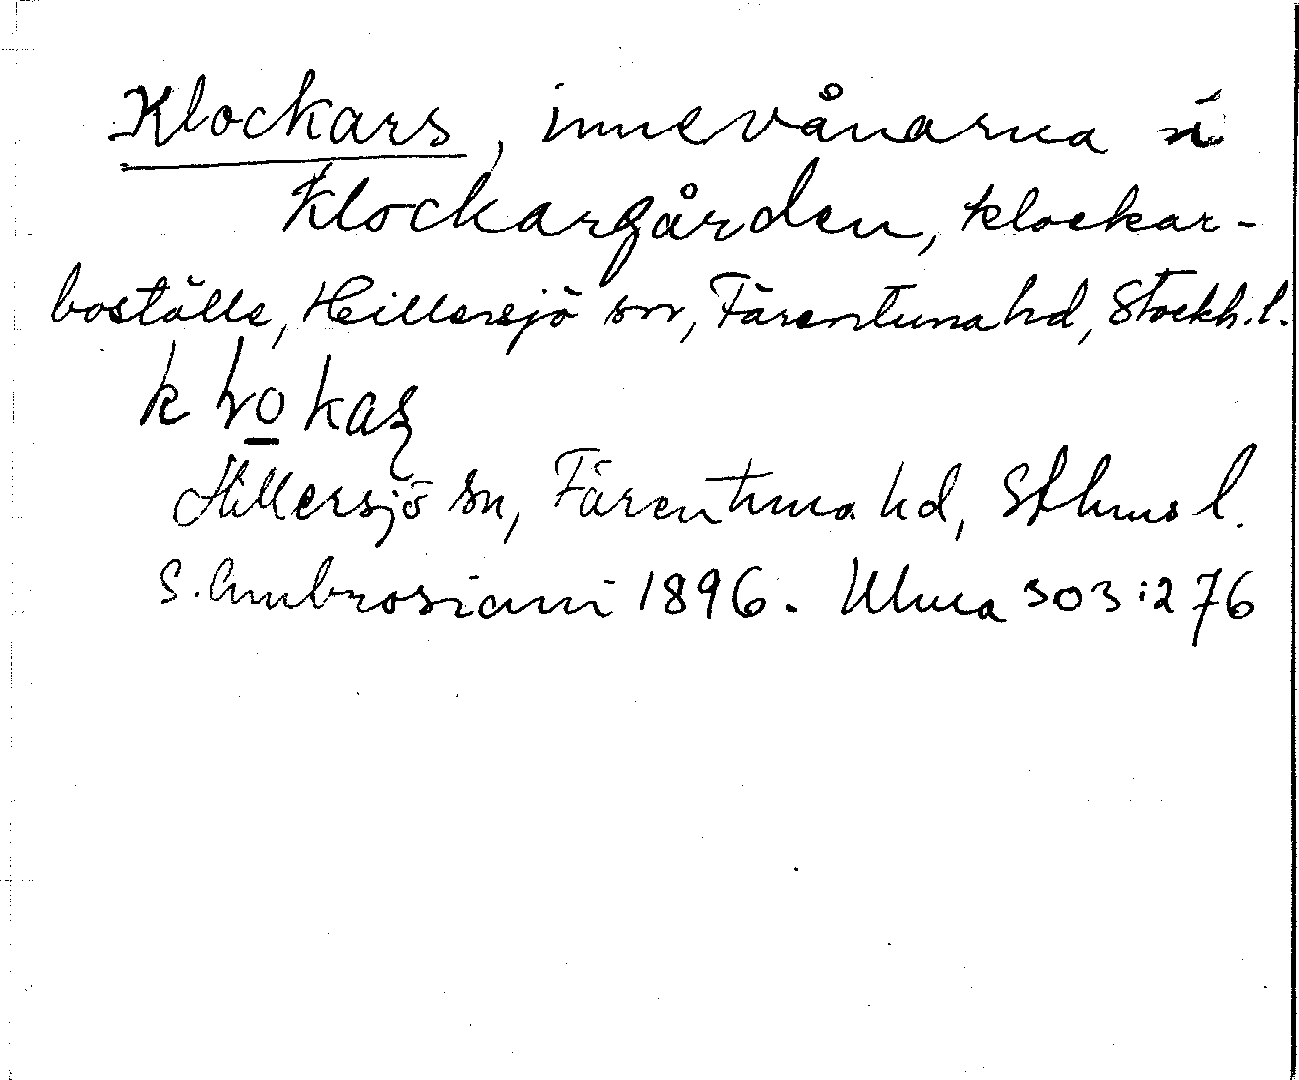 Klockars, innevånarna i
Klockargården, klockar-
boställe, Hillersjö sn, Färentuna hd, Stockh. l.
Hillersjö sn, Färentuna hd, Sthms l.
S. Ambrosiani 1896. Ulma 303:276